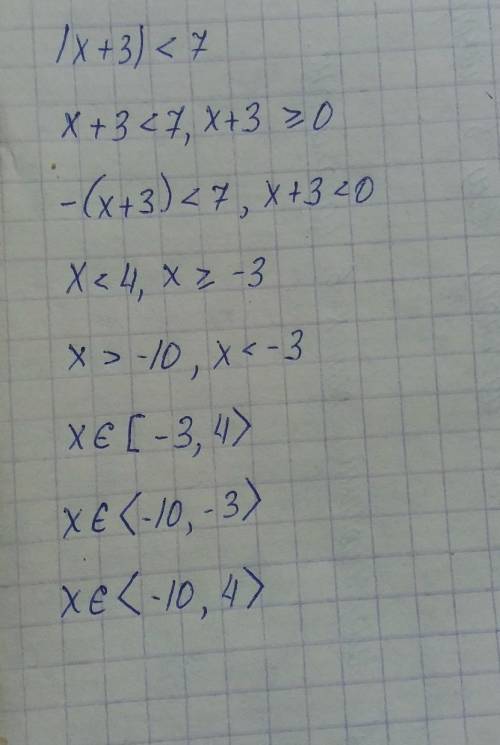 |x+3|<7
x+3<7, x+3 ≥0
-(x+3)<7, x+3<0
x<4, x ≥ -3
x > -10, x < -3
x ∈ [-3, 4⟩
x ∈ ⟨-10, -3⟩
x ∈ ⟨-10, 4⟩